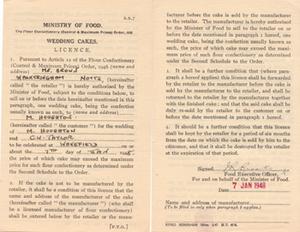 S.R.7
MINISTRY OF FOOD.
The Flour Confectionery (Control & Maximum Prices) Order, 1946
WEDDING CAKES.
LICENCE.
1. Pursuant to Article 12 of the Flour Confectionery
(Control & Maximum Prices) Order, 1946 (name and
address)
(hereinafter
called "the retailer") is hereby authorised by the
Minister of Food, subject to the conditions below, to
sell on or before the date hereinafter mentioned in this
paragraph, one wedding cake, being flour confectionery
as such, to (name and address)
M. HOUGHTON
(hereinafter called "the customer") for the wedding of
M. HOUGHTON
and
to be celebrated at WAKEFIELD
on or about the
the price of which cake may exceed the maximum
price for such flour confectionery as determined under
the Second Schedule to the Order.
2. If the cake is not to be manufactured by the
retailer, it shall be a condition of this licence that the
name and address of the manufacturer of the cake
(hereinafter called "the manufacturer")
shall be entered below by the retailer or the manu-
[P.T.O.]
facturer before the cake is sold by the manufacturer to
the retailer. The manufacturer is hereby authorised
by the Minister of Food to sell to the retailer on or
before the date mentioned in paragraph 1 hereof, one
wedding cake, being flour confectionery usually sold
as such, the price of which cake may exceed the maximum
price of such flour confectionery as determined under
the Second Schedule to the Order.
3. It shall be a further condition (where para-
graph 2 hereof applies) that this licence shall be forwarded
by the retailer to the manufacturer on or before the
date mentioned in paragraph 1 hereof, and shall be
returned by the manufacturer to the retailer together
with the finished cake: and that the cake and shall
be sold by the retailer to the customer on or
before the date mentioned.
4. It shall be a further condition that this licence
shall be kept by the retailer for a period of six months
from the date on which the cake is sold by him to the
customer, and that it shall be destroyed by the retailer
at the expiration of that period.
Signed
Food Executive Officer,
For and on behalf of the Minister of Food.
7 JAN 1948
Date
Name and address of manufacturer
(To be filled in only when paragraph 2 applies.)